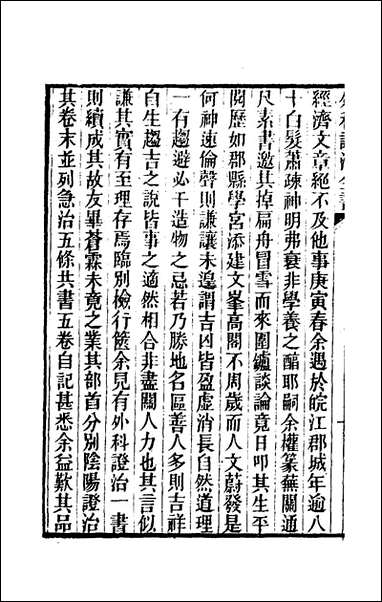 經濟文章絕不及他事庚寅春余遇於皖江郡城年逾八
十白髮蕭疎神明弗衰非學養之醕耶嗣余權篆蕪關通
尺素書邀其掉扁舟冒雪而來圍鑪談論竟日叩其生平
閱歷如郡縣學宮添建文峯高閣不周歲而人文蔚發是
何神速倫聲則謙讓未遑謂吉凶皆盈虛消長自然道理
一有趨避必干造物之忌若乃勝地名區善人多則吉祥
自生趨吉之說皆事之適然相合非盡關人力也其言似
謙其實有至理存焉臨別檢行篋余見有外科證治一書
則續成其故友畢蒼霖未竟之業其部首分別陰陽證治
其卷末並列急治五條共書五卷自記甚悉余益歎其品